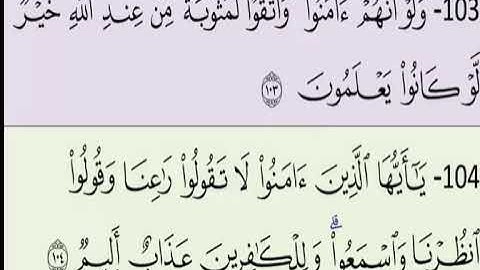 103- وَلَوْ أَنَّهُمْ ءَامَنُوا۟ وَٱتَّقَوْا۟ لَمَثُوبَةٌ مِّنْ عِندِ ٱللَّهِ خَيْرٌ
لَّوْ كَانُوا۟ يَعْلَمُونَ ١٠٣
104- يَـٰٓأَيُّهَا ٱلَّذِينَ ءَامَنُوا۟ لَا تَقُولُوا۟ رَٰعِنَا وَقُولُوا۟
ٱنظُرْنَا وَٱسْمَعُوا۟ ۗ وَلِلْكَـٰفِرِينَ عَذَابٌ أَلِيمٌ ١٠٤